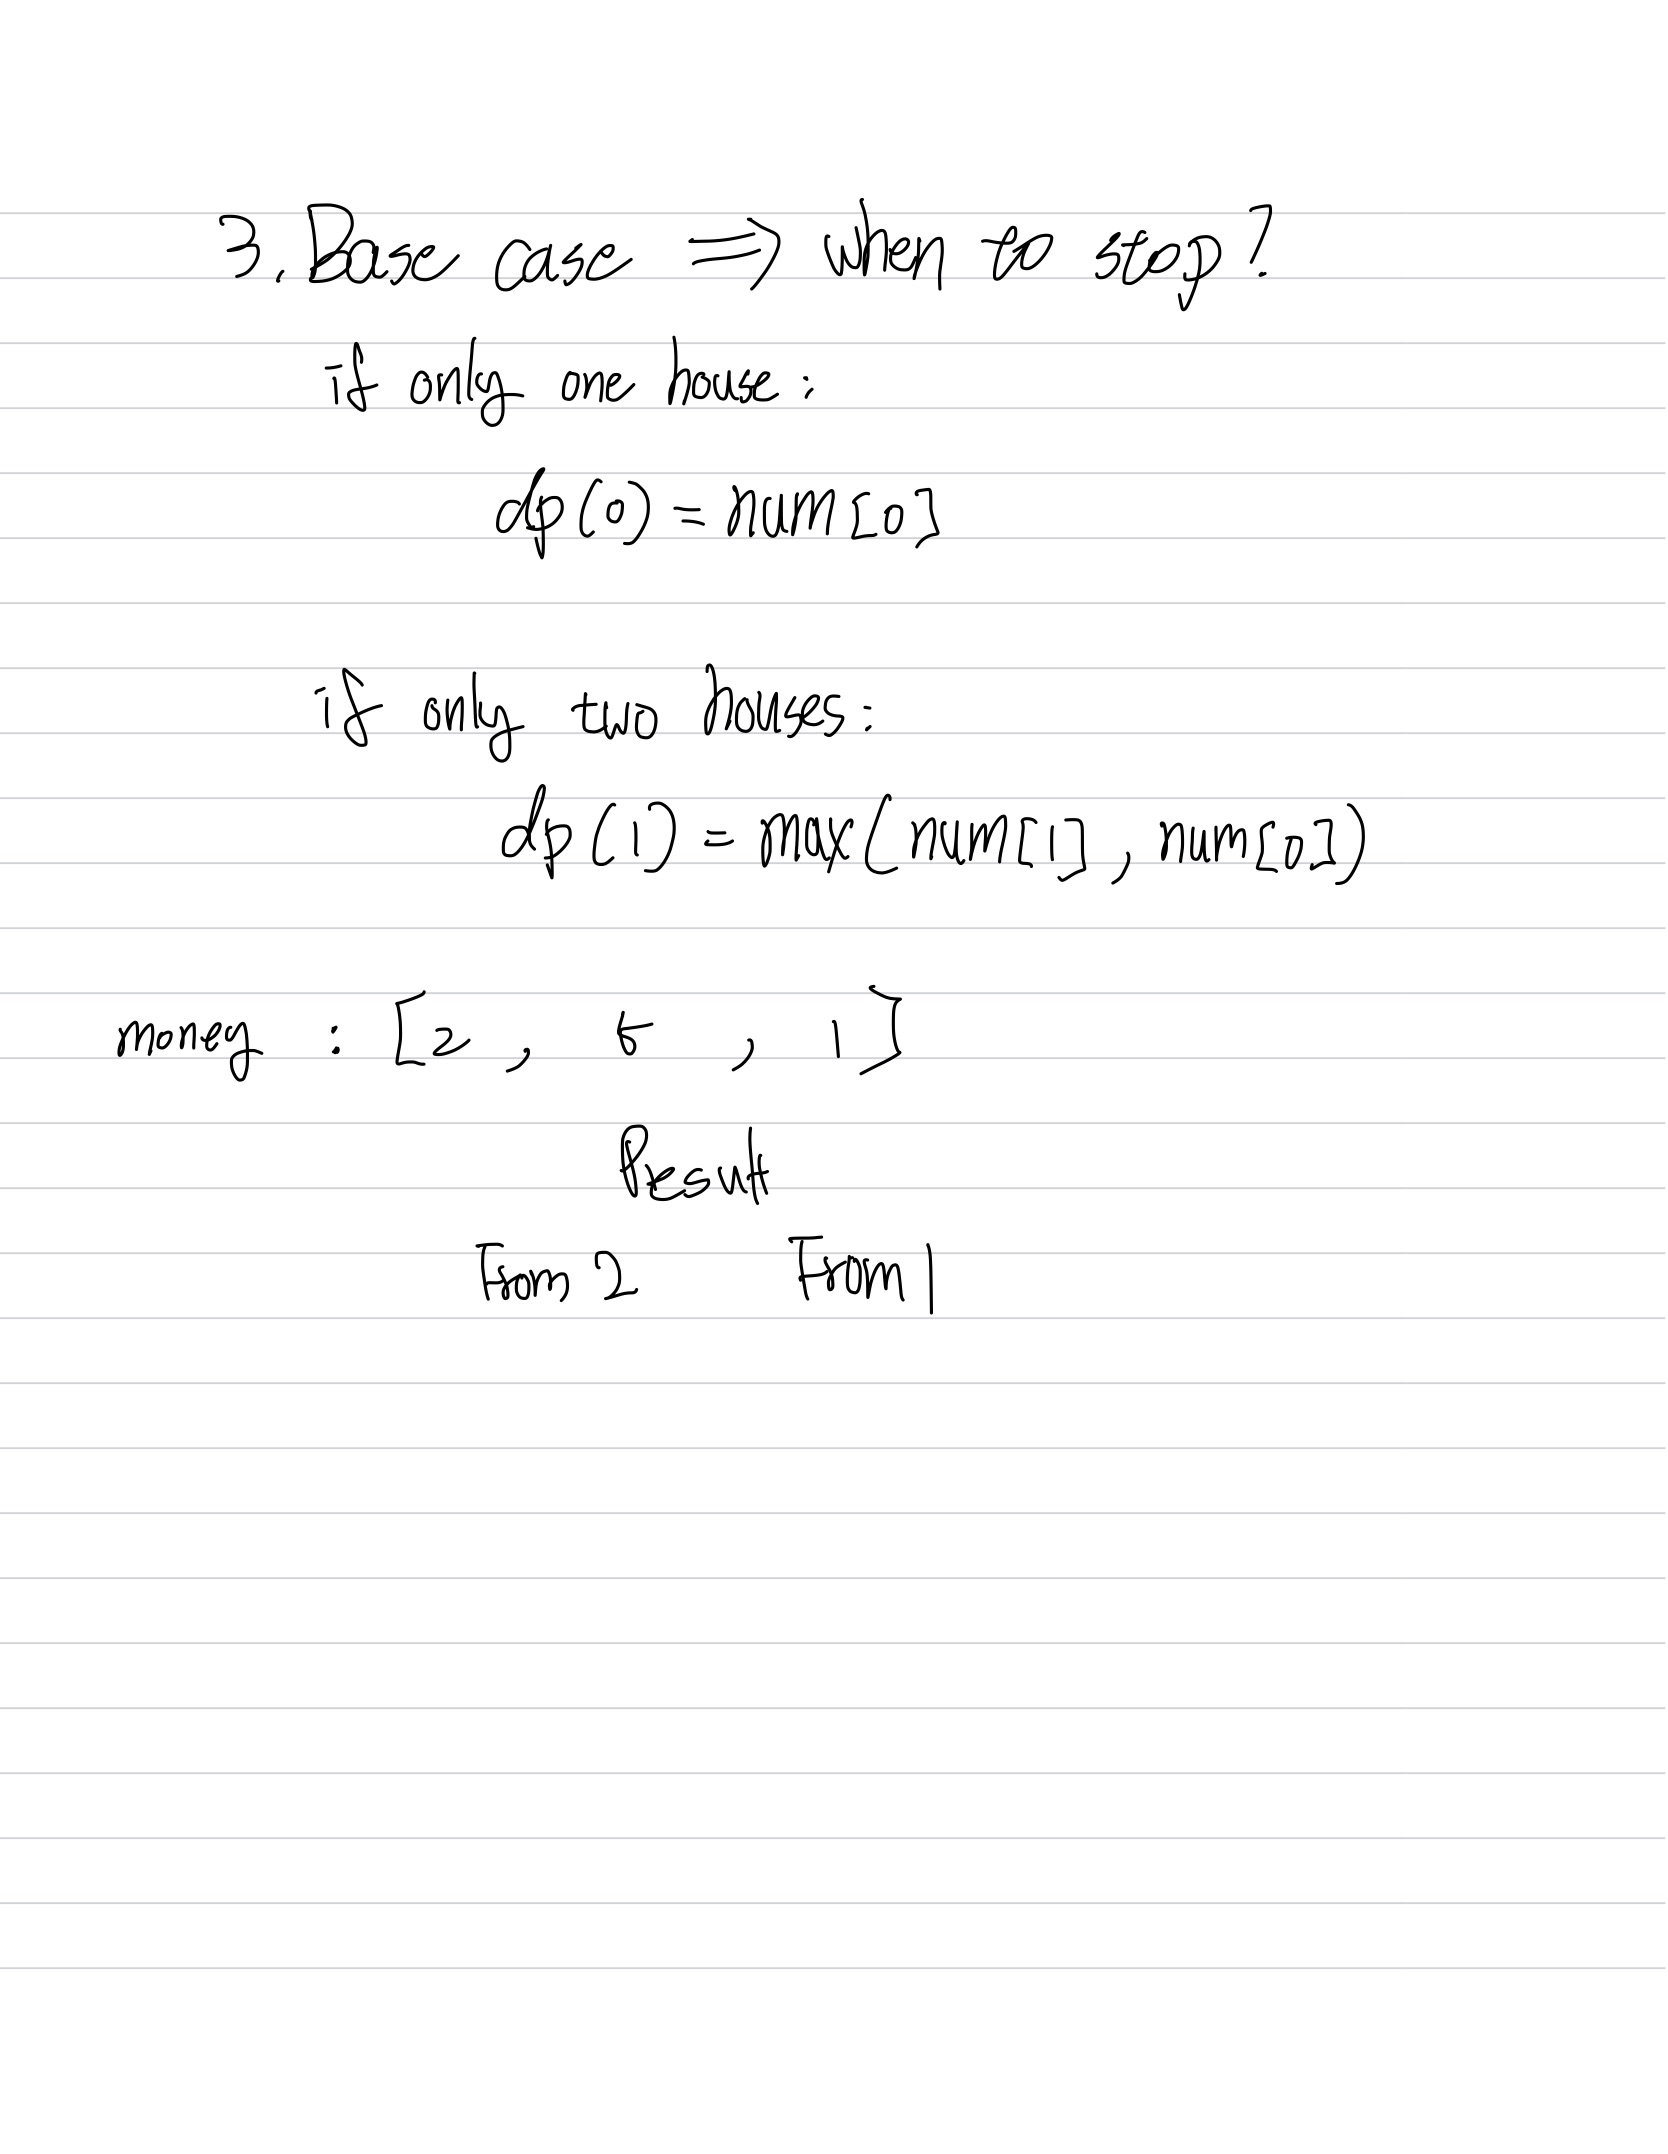 3. Base case ⇒ when to stop?
if only one house:
dp(0) = num[0]
if only two houses:
dp(1) = max(num[1], num[0])
money : [2, 5, 1]
Result
From 2 From 1